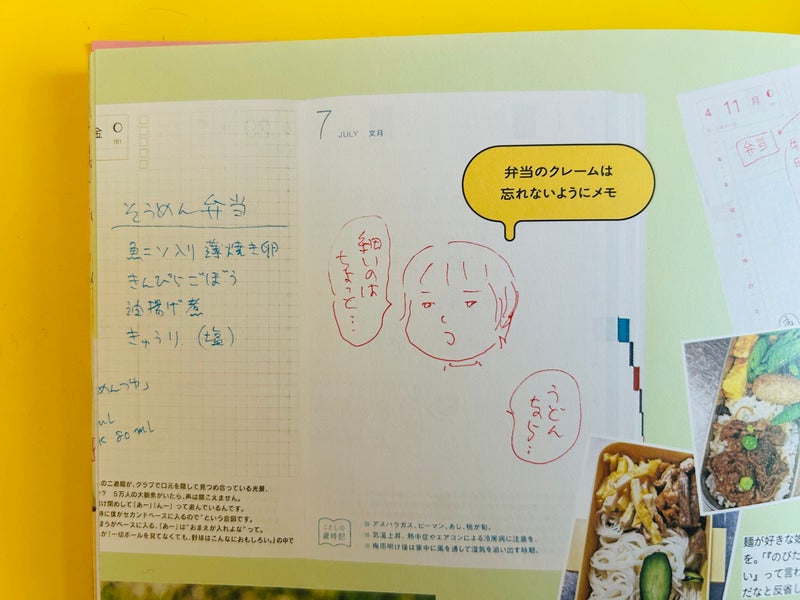 金
7 JULY 文月
弁当のクレームは
忘れないようにメモ
4 11 月
弁当
そうめん弁当
魚ニソ入り薄焼き卵
きんぴらごぼう
油揚げ煮
きゅうり(塩)
めんつゆ
80ml
細いのは
ちょっと…
うどん
なら…
の二遊間が、クラブで口元を隠して見つめ合っている光景、
? 5万人の大観衆がいたら、声は聞こえません。
け閉めして「あー」「んー」って遊んでいるんです。
時に僕がセカンドベースに入るので”という合図です。
ほうがベースに入る。「あー」は“おまえが入れよな”って。
か「一切ボールを見てなくても、野球はこんなにおもしろい。」の中で
ことしの
歳時記
アスパラガス、ピーマン、あじ、桃が旬。
気温上昇。熱中症やエアコンによる冷房病に注意を。
梅雨明け後は家中に風を通して湿気を追い出す時期。
麺が好きな
を。「『のびた
い』って言わ
だなと反省し